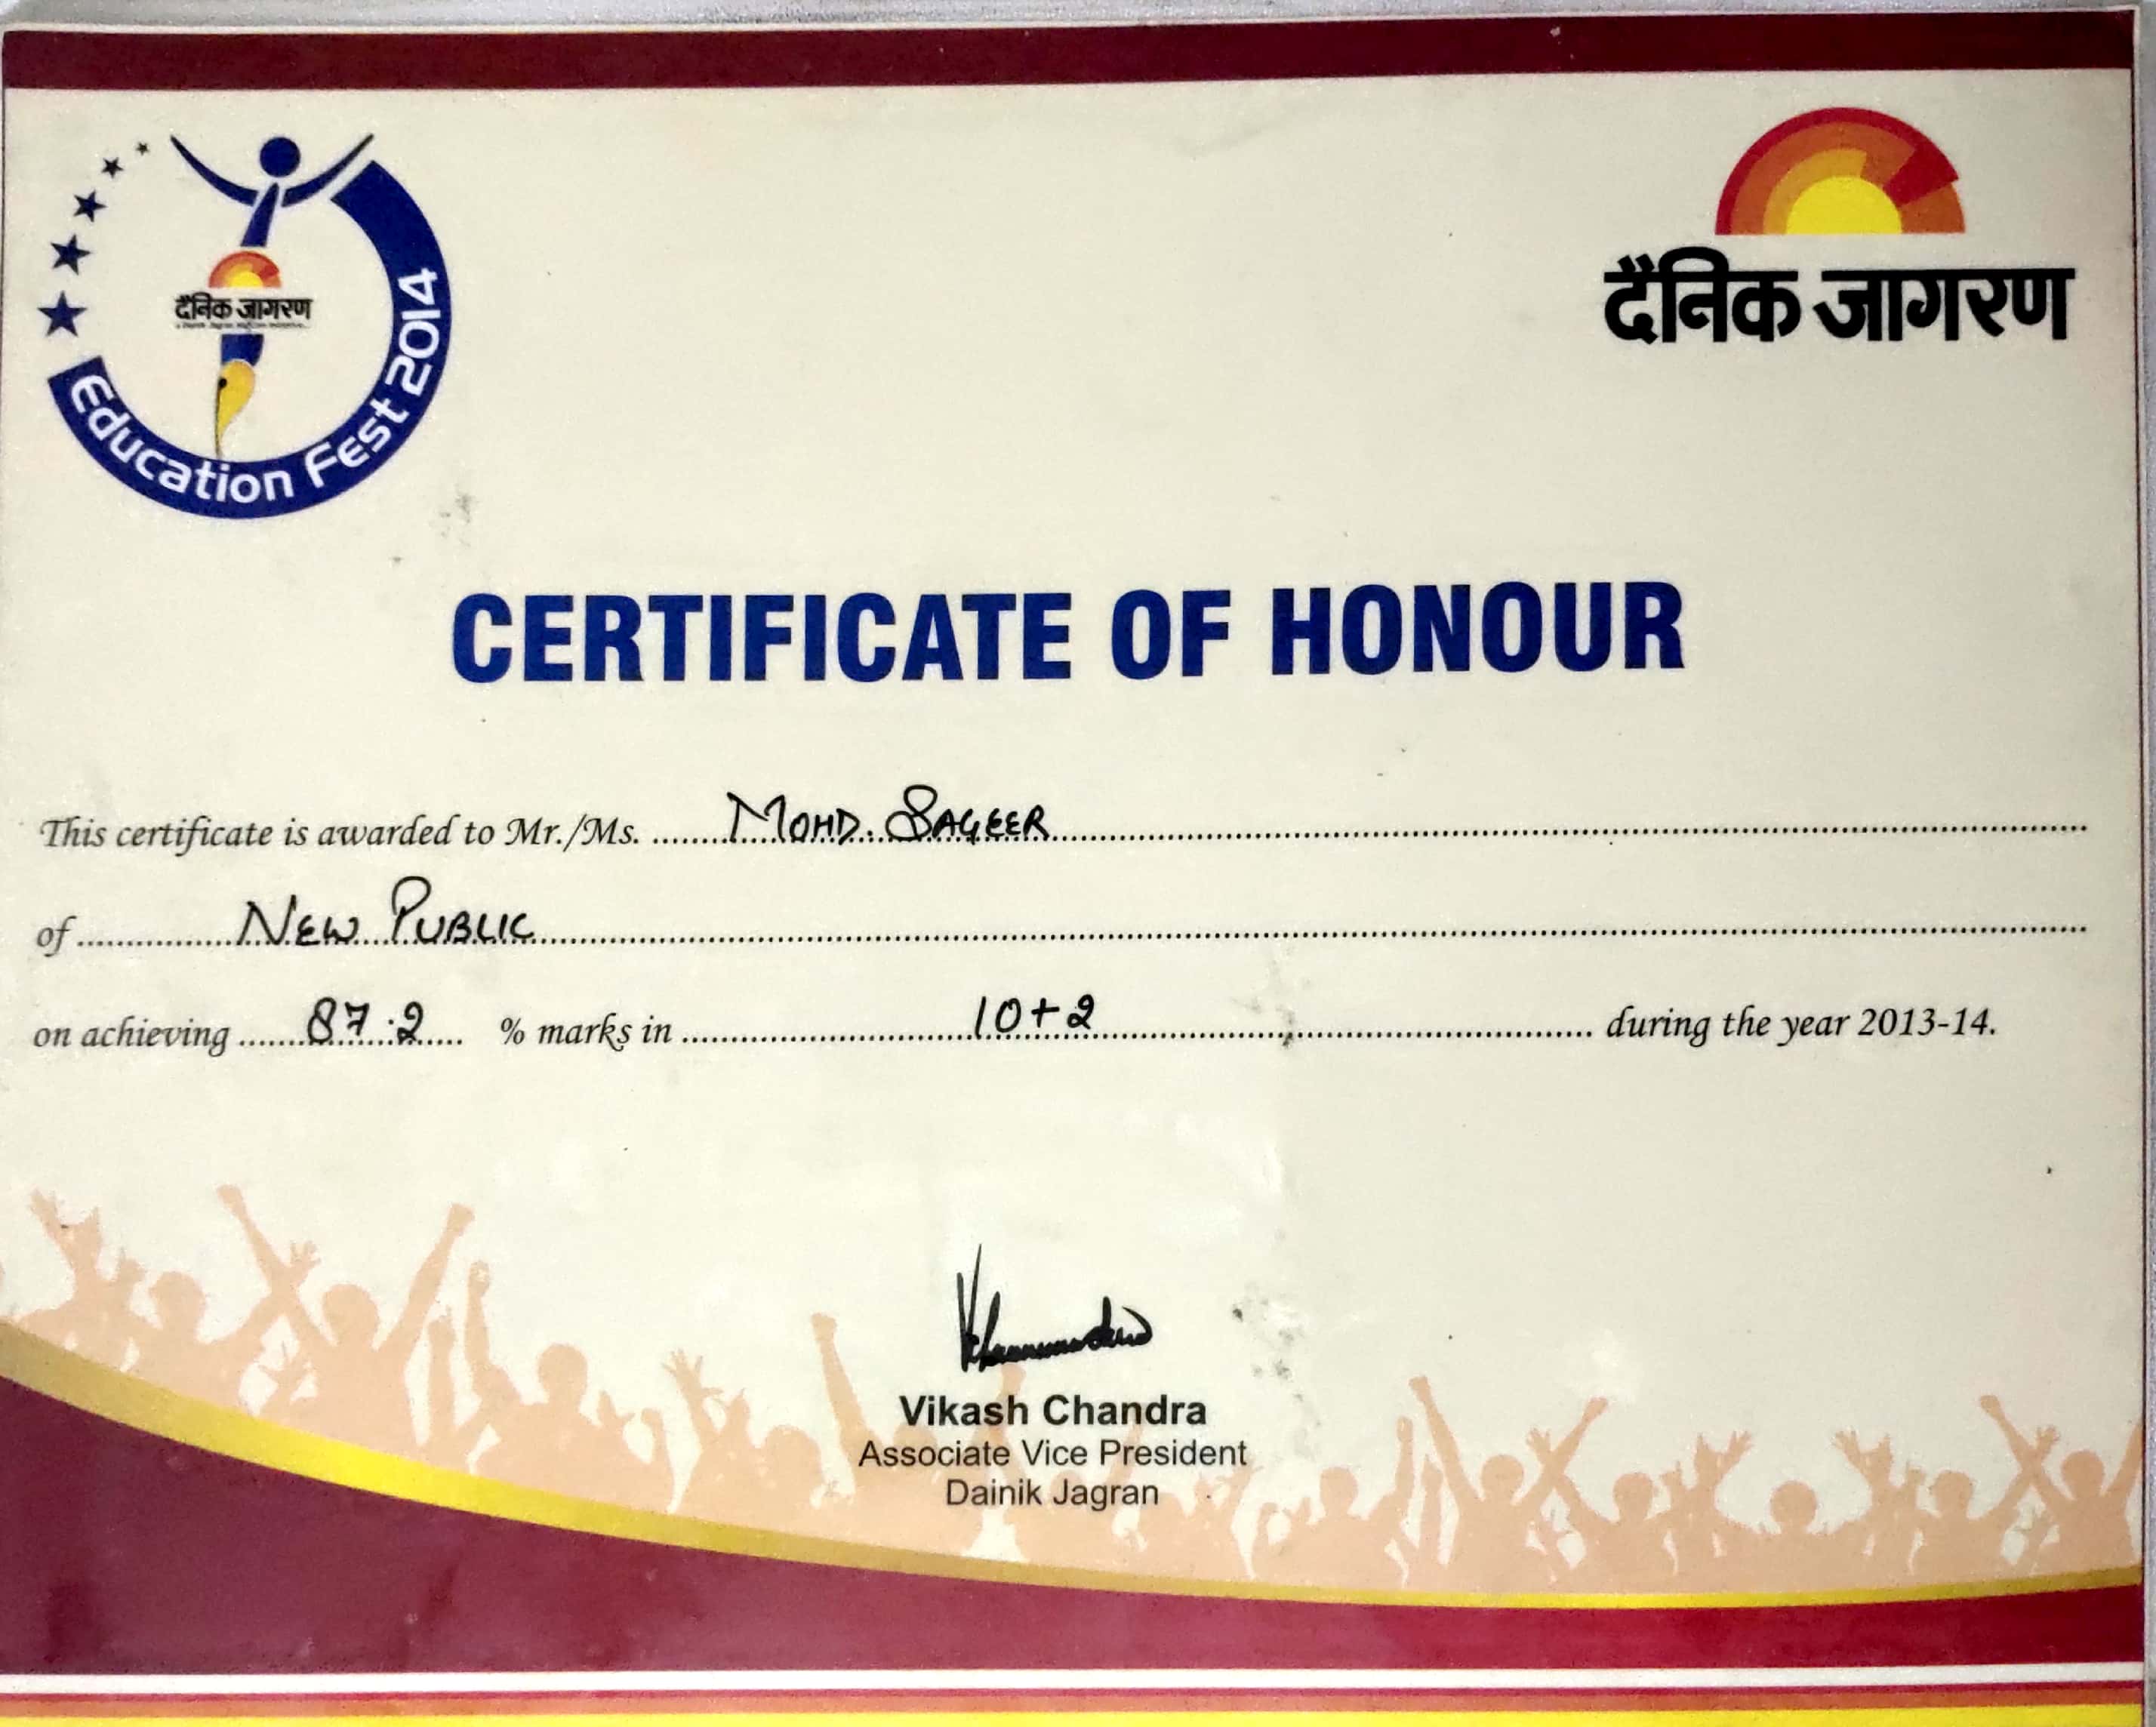 दैनिक जागरण
Education Fest 2014
दैनिक जागरण
CERTIFICATE OF HONOUR
This certificate is awarded to Mr./Ms. ....... MOHD. SAGEER ..........
of ............... NEW PUBLIC ..........
on achieving ....... 87.2 ..... % marks in .................... 10+2 .................... during the year 2013-14.
Vikash Chandra
Associate Vice President
Dainik Jagran